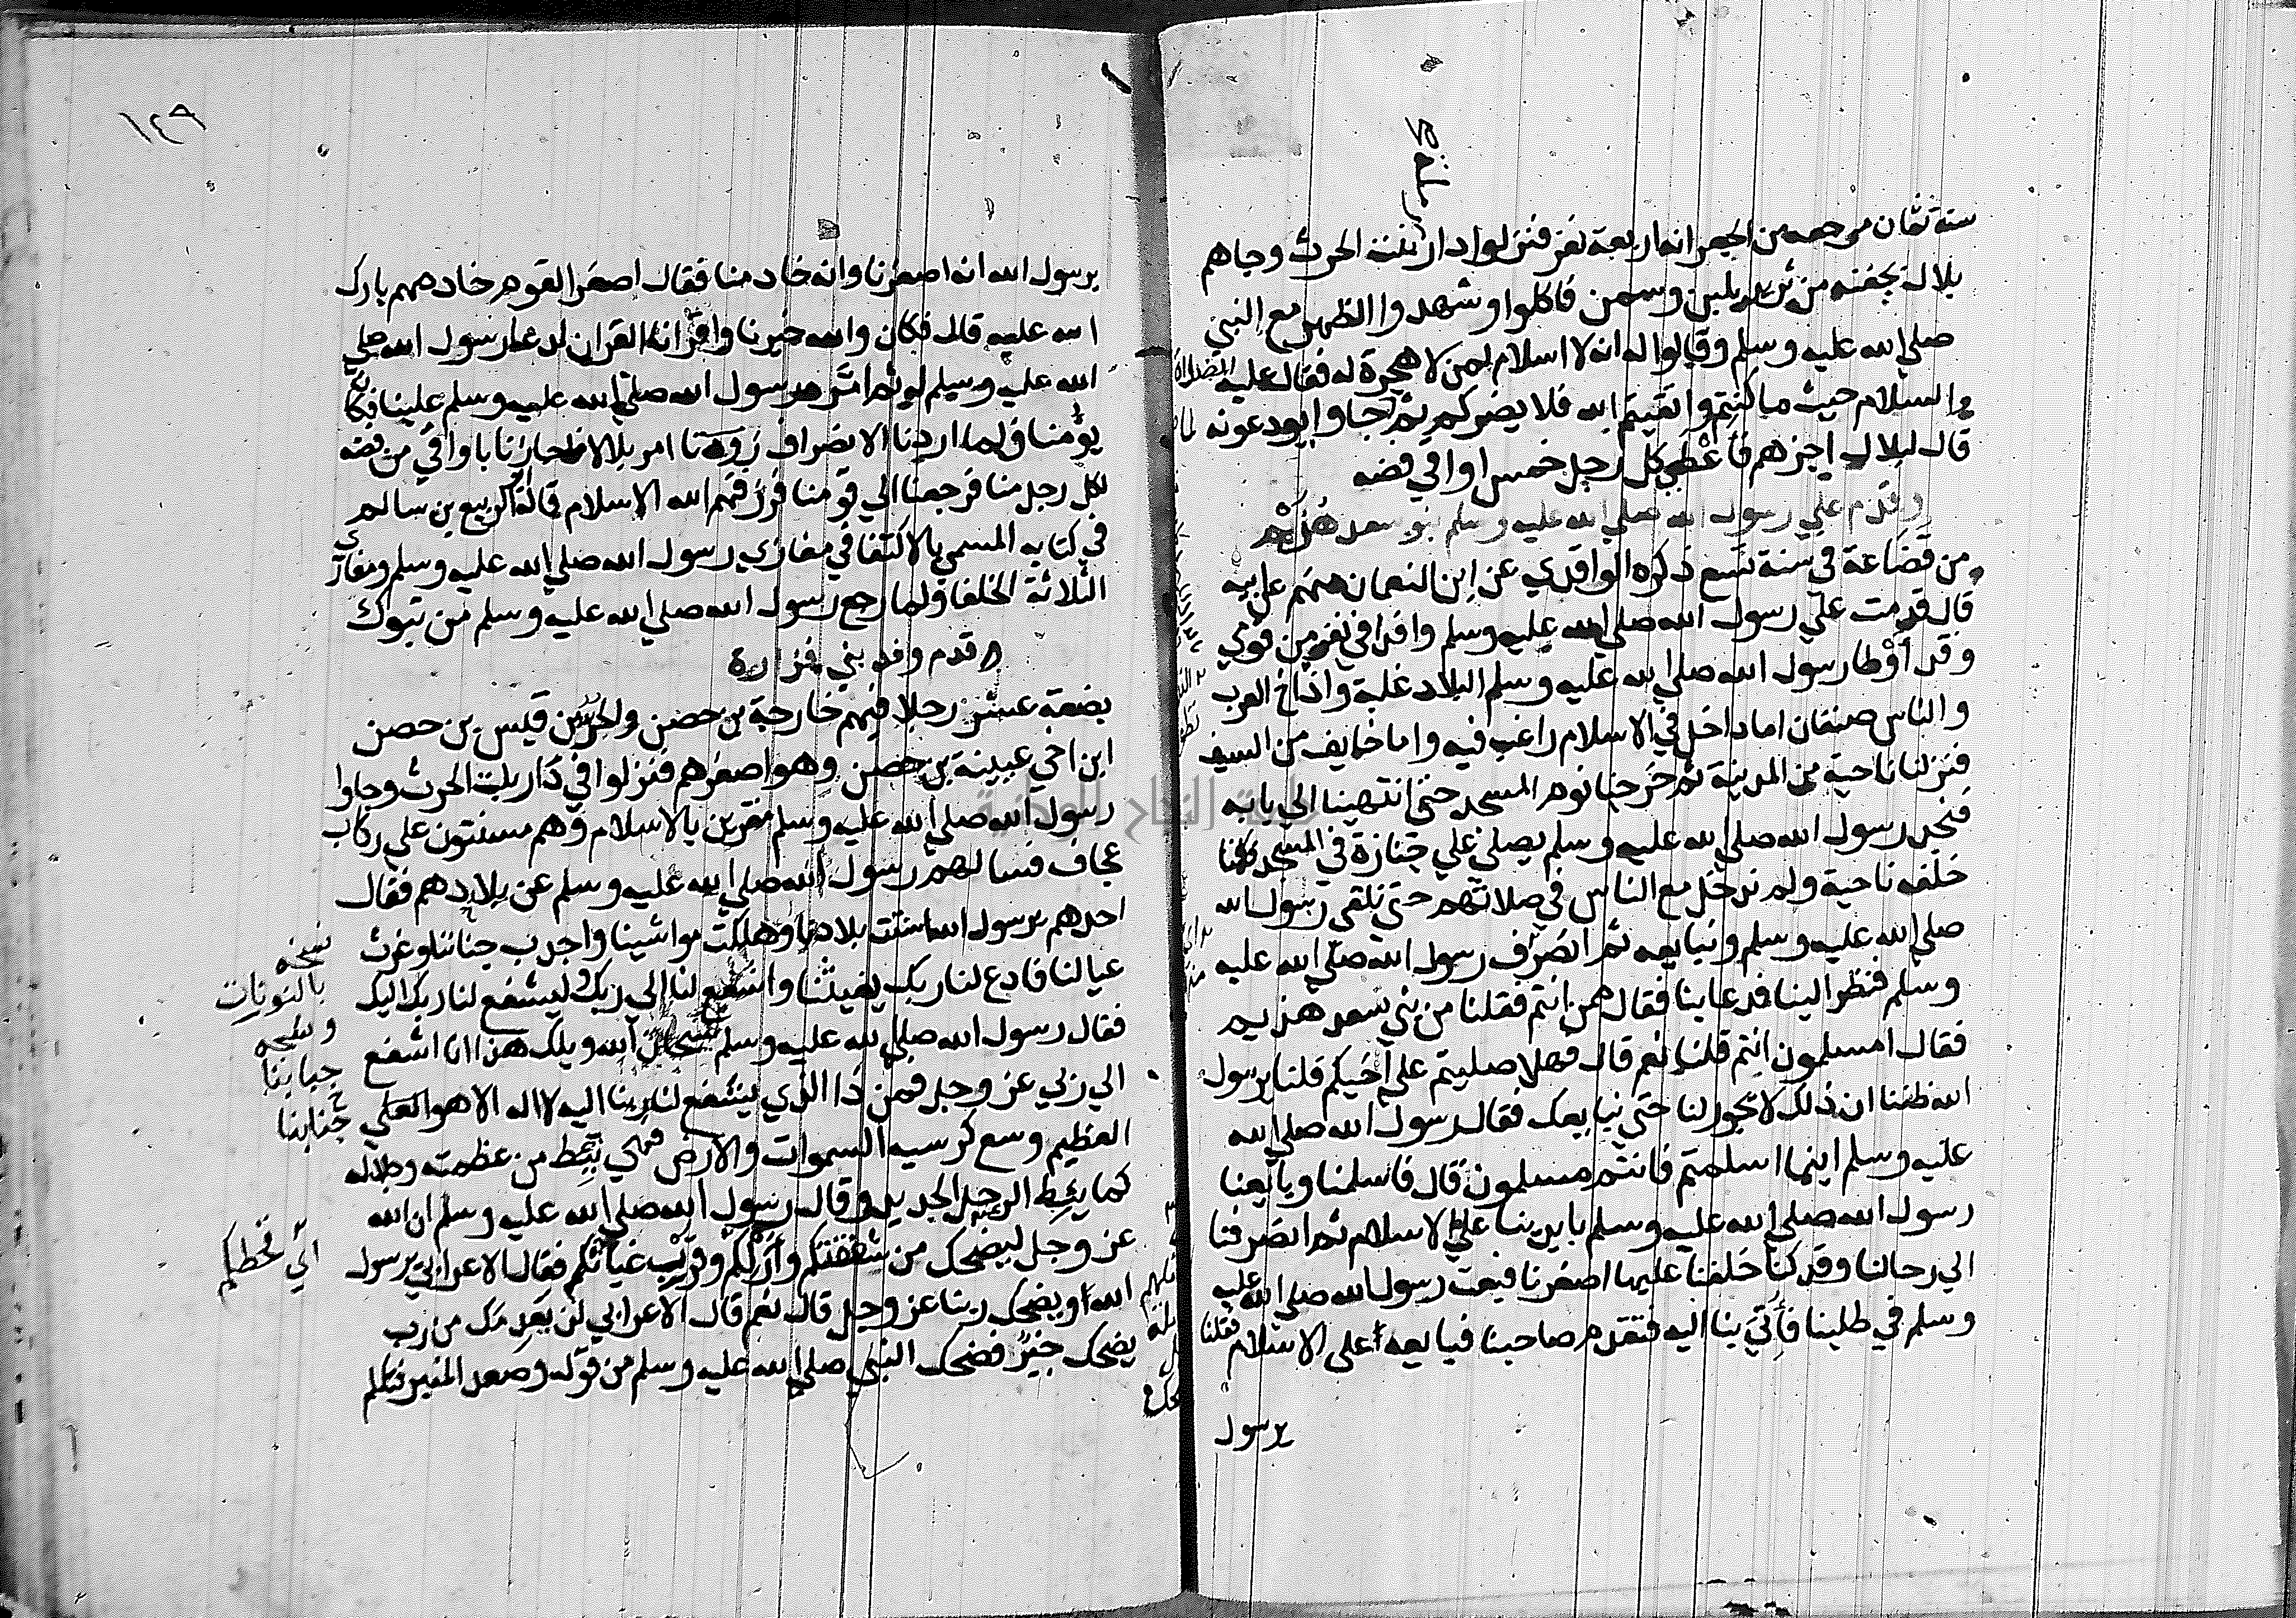 سنة ثمان مرجعه من الجعرانه اربعة نفر فنزلوا دار بنت الحرث وجاهم
بلال بجفنه من ثريد بلبن وسمن فاكلوا وشهدوا الظهر مع النبي
صلي الله عليه وسلم وقالوا له انه لا اسلام لمن لا هجرة له فقال عليه الصلاة
والسلام حيث ما كنتم واتقيتم الله فلا يضركم ثم جاوا يودعونه
قال لبلال اجزهم فاعطي كل رجل خمس اواقي فضه
وقدم علي رسول الله صلي الله عليه وسلم بنو سعد هذيم
من قضاعة في سنة تسع ذكره الواقدي عن ابن النعمان منهم عن ابيه
قال قدمت علي رسول الله صلي الله عليه وسلم وافدا في نفر من قومي
وقد أوطا رسول الله صلي الله عليه وسلم البلاد غلبة واذاخ العرب
والناس صنفان اما داخل في الاسلام راغب فيه واما خايف من السيف
فنزلنا ناحية من المدينة ثم خرجنا نوم المسجد حتى انتهينا الي بابه
فنجد رسول الله صلي الله عليه وسلم يصلي علي جنازة في المسجد فقمنا
خلفه ناحية ولم ندخل مع الناس في صلاتهم حتى نلقى رسول الله
صلي الله عليه وسلم ونبايعه ثم انصرف رسول الله صلي الله عليه
وسلم فنظر الينا فدعا بنا فقال ممن انتم فقلنا من بني سعد هذيم
فقال امسلمون انتم قلنا نعم قال فهلا صليتم علي أخيكم قلنا يرسول
الله ظننا ان ذلك لا يجوز لنا حتى نبايعك فقال رسول الله صلي الله
عليه وسلم اينما اسلمتم فانتم مسلمون قال فاسلمنا وبايعنا
رسول الله صلي الله عليه وسلم بايدينا علي الاسلام ثم انصرفنا
الي رحالنا وقد كنا خلفنا عليها اصغرنا فبعث رسول الله صلي الله عليه
وسلم في طلبنا فأتي بنا اليه فتقدم صاحبنا فبايعه على الاسلام فقلنا
يرسول
١٤٩
يرسول الله انه اصغرنا وانه خادمنا فقال اصغر القوم خادمهم بارك
الله عليه قال فكان والله خيرنا واقرانا القران لدعا رسول الله صلي
الله عليه وسلم له ثم امّره رسول الله صلي الله عليه وسلم علينا فكان
يؤمنا ولما اردنا الانصراف امر بلالا فاجازنا باواقي من فضه
لكل رجل منا فرجعنا الي قومنا فرزقهم الله الاسلام قاله الربيع بن سالم
في كتابه المسمي بالاكتفا في مغازي رسول الله صلي الله عليه وسلم ومغازي
الثلاثة الخلفا ولما رجع رسول الله صلي الله عليه وسلم من تبوك
قدم وفد بني فزارة
بضعة عشر رجلا فيهم خارجة بن حصن والحر بن قيس بن حصن
ابن اخي عيينة بن حصن وهو اصغرهم فنزلوا في دار بنت الحرث وجاوا
رسول الله صلي الله عليه وسلم مقرين بالاسلام وهم مسنتون علي ركاب
عجاف فسالهم رسول الله صلي الله عليه وسلم عن بلادهم فقال
احدهم يرسول الله اسنتت بلادنا وهلكت مواشينا واجدب جنابنا وغرث
عيالنا فادع لنا ربك يغيثنا واشفع لنا الي ربك وليشفع لنا ربك اليك
فقال رسول الله صلي الله عليه وسلم سبحان الله ويلك هذا انا اشفع
الي ربي عز وجل فمن ذا الذي يشفع لنا ربنا اليه لا اله الا هو العلي
العظيم وسع كرسيه السموات والارض فهي تئط من عظمته وجلاله
كما يئط الرحل الجديد وقال رسول الله صلي الله عليه وسلم ان الله
عز وجل ليضحك من شفقتكم وأزلكم وقرب غياثكم فقال الاعرابي يرسول
الله أو يضحك ربنا عز وجل قال نعم قال الاعرابي لن نعدمك من رب
يضحك خيرًا فضحك النبي صلي الله عليه وسلم من قوله وصعد المنبر فتكلم
نسخه
بالنونات
جنابنا
اي قحطكم
جامعة النجاح الوطنية